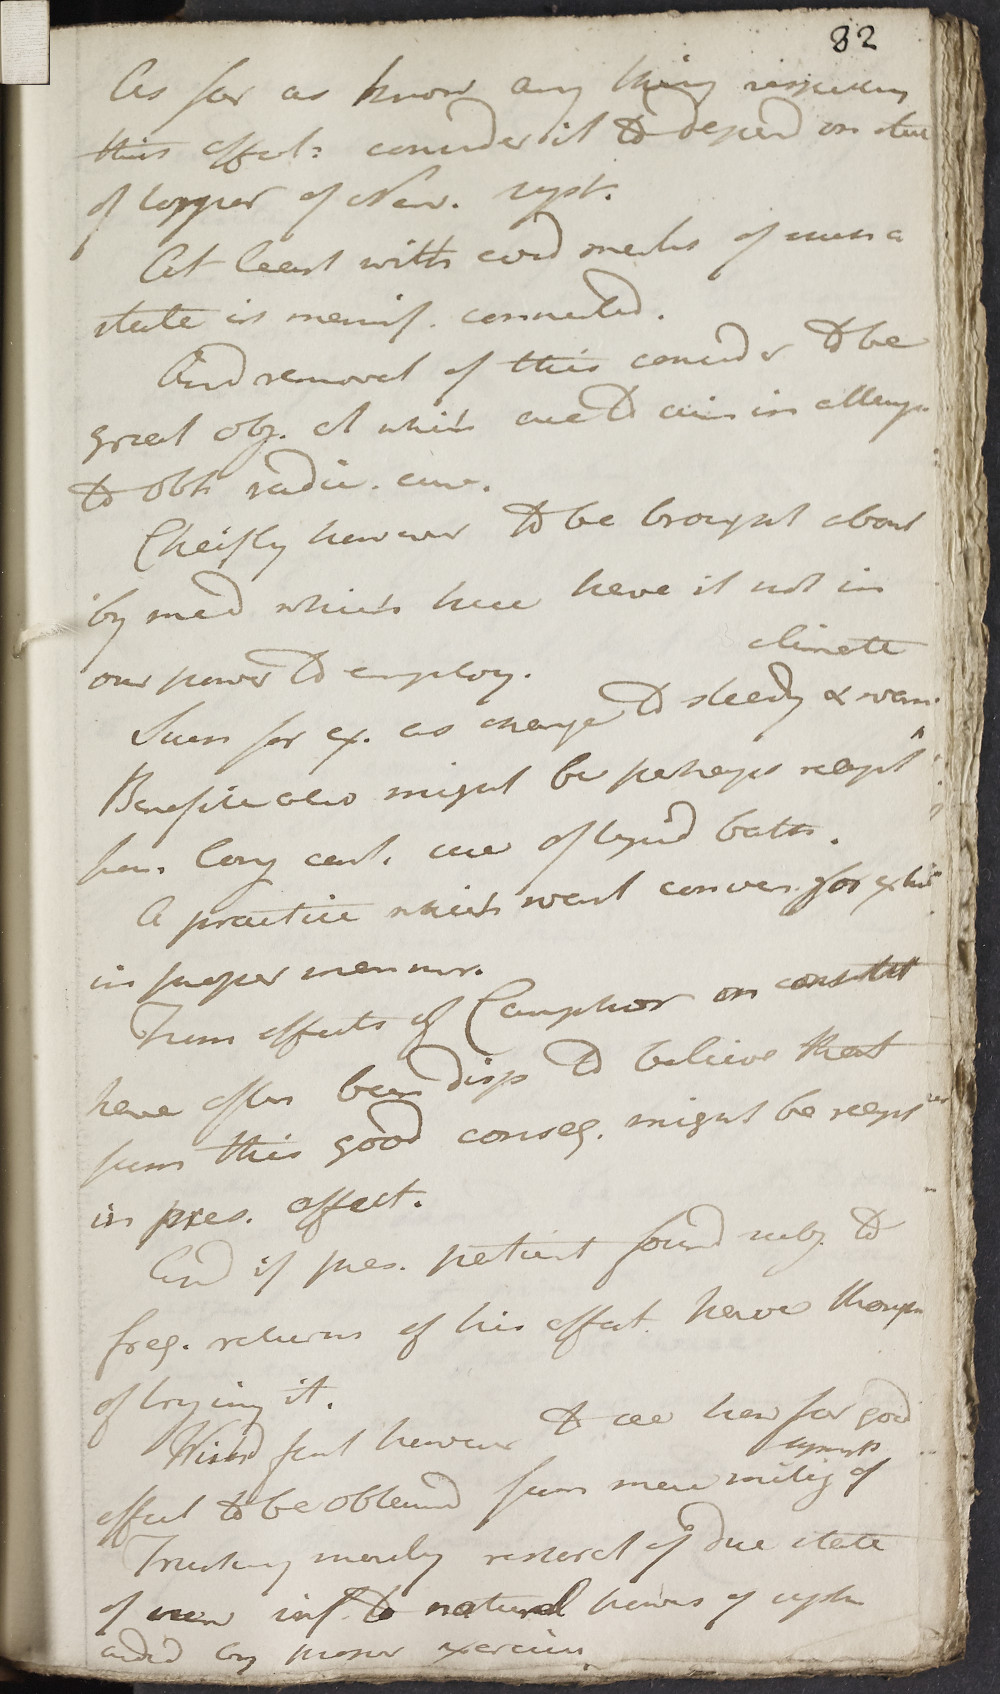 82
As far as know any thing respecting
this affect: consider it to depend on state
of torpor of Nerv. syst.
At least with cond marks of such a
state is manif. connected.
And removal of this consider to be
great obj. at which are to aim in attempt
to obt radic. cure.
Cheifly however to be brought about
by med which here have it not in
our power to employ.
climate
Such for ex. as change to steady & warm
Benefits also might be perhaps reapt
from long cont. use of tepid bath.
A practice which want conven. for exhib
in proper manner.
From effects of Camphor on constitut
have often been disp to believe that
from this good conseq. might be reapt
in pres. affect.
And if pres. patient found subj. to
freq. returns of his affect. have thoughts
of trying it.
Wishd first however to see how far good
sympts
effect to be obtained from mere mitig of
Trusting merely restorat of due state
of nerv inf. to natural powers of syst
aided by proper exercise.